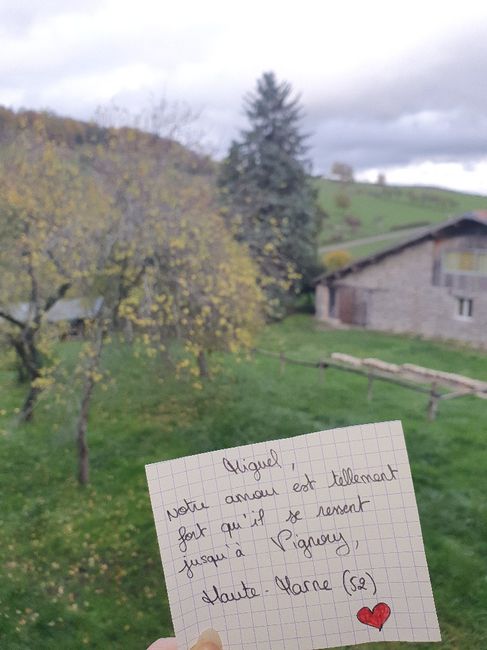 Miguel,
Notre amour est tellement
fort qu'il se ressent
jusqu'à Vignory,
Haute-Marne (52)